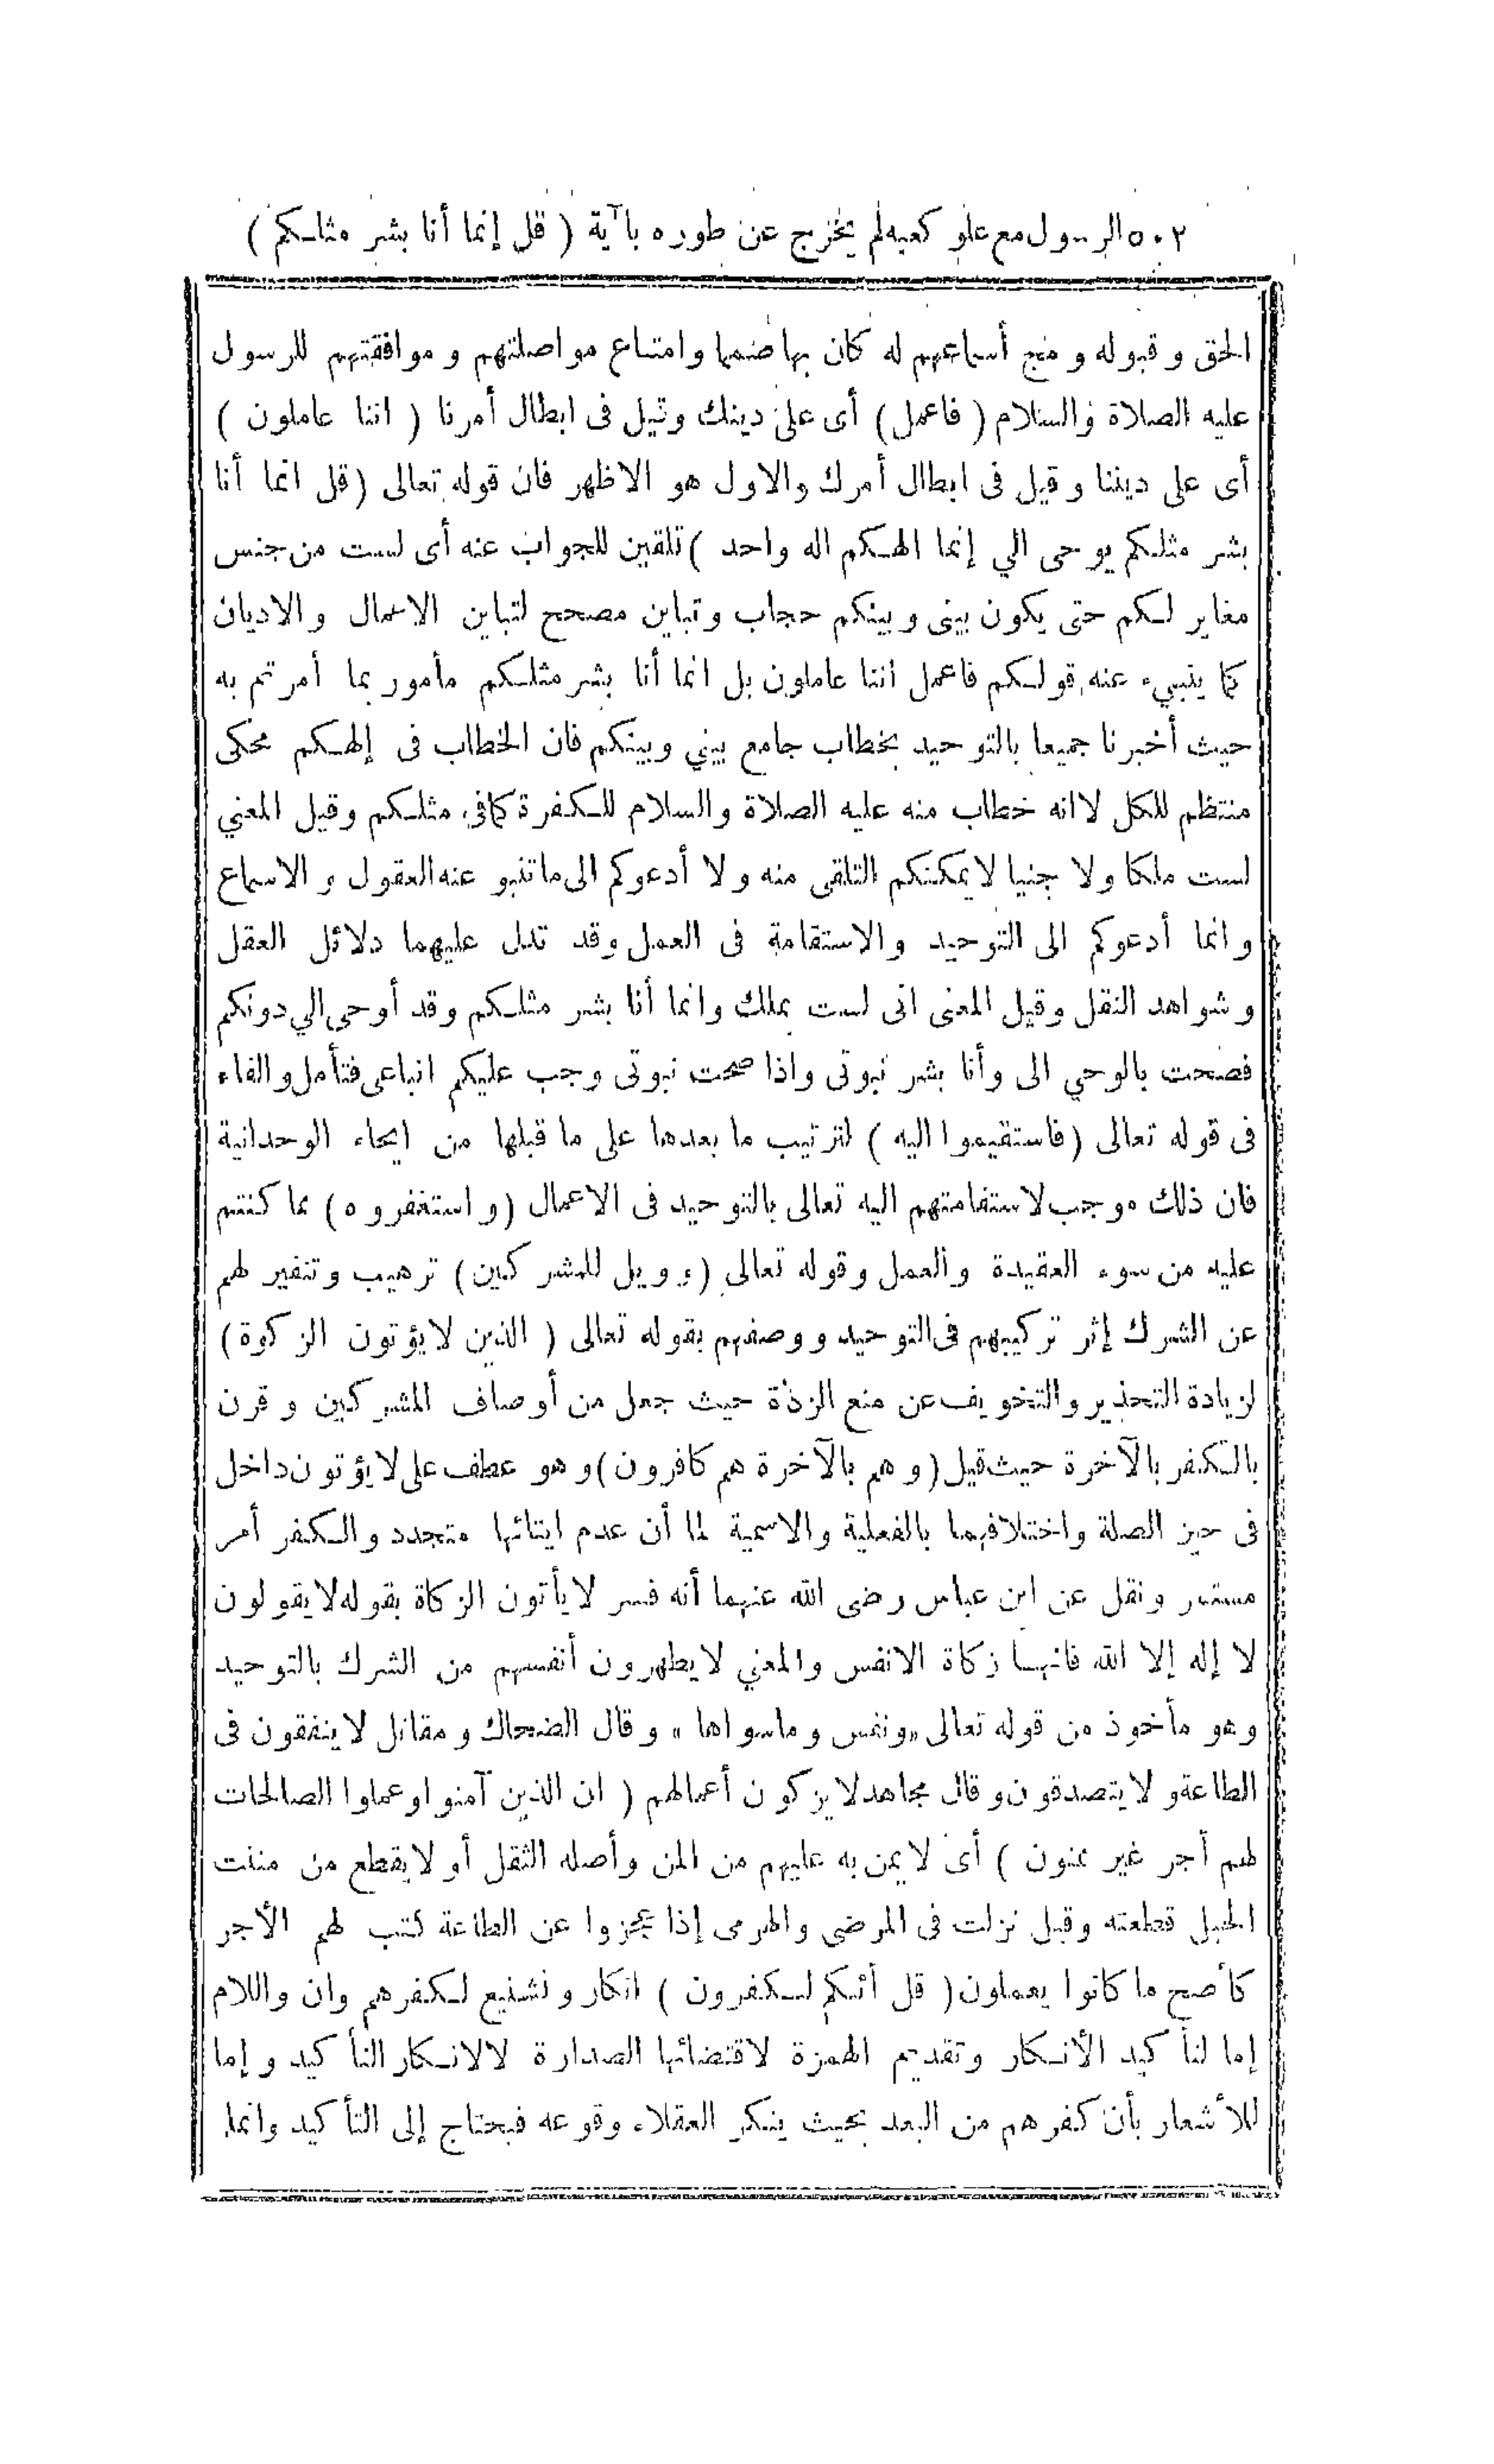 ٥٠٢ الرسول مع علو كعبه لم يخرج عن طوره بآية ( قل إنما أنا بشر مثلكم )
الحق وقبوله ومج أسماعهم له كأن بها صمما وامتناع مواصلتهم وموافقتهم للرسول
عليه الصلاة والسلام ( فاعمل ) أى على دينك وقيل فى ابطال أمرنا ( اننا عاملون )
أى على ديننا وقيل فى ابطال أمرك والاول هو الاظهر فان قوله تعالى ( قل انما أنا
بشر مثلكم يوحى الي إنما الهكم اله واحد ) تلقين للجواب عنه أى لست من جنس
مغاير لكم حتى يكون بينى وبينكم حجاب وتباين مصحح لتباين الاعمال والاديان
كما ينبىء عنه قولكم فاعمل اننا عاملون بل انما أنا بشر مثلكم مأمور بما أمرتم به
حيث أخبرنا جميعا بالتوحيد بخطاب جامع بيني وبينكم فان الخطاب فى إلهكم محكى
منتظم للكل لا انه خطاب منه عليه الصلاة والسلام للكفرة كما فى مثلكم وقيل المعني
لست ملكا ولا جنيا لا يمكنكم التلقى منه ولا أدعوكم الى ما تنبو عنه العقول والاسماع
وانما أدعوكم الى التوحيد والاستقامة فى العمل وقد تدل عليهما دلائل العقل
وشواهد النقل وقيل المعنى انى لست بملك وانما أنا بشر مثلكم وقد أوحى الي دونكم
فصحت بالوحي الى وأنا بشر نبوتى واذا صحت نبوتى وجب عليكم اتباعى فتأمل والفاء
فى قوله تعالى ( فاستقيموا اليه ) لترتيب ما بعدها على ما قبلها من ايحاء الوحدانية
فان ذلك موجب لاستقامتهم اليه تعالى بالتوحيد فى الاعمال ( واستغفروه ) مما كنتم
عليه من سوء العقيدة والعمل وقوله تعالى ( وويل للمشركين ) ترهيب وتنفير لهم
عن الشرك إثر تركيبهم فى التوحيد ووصفهم بقوله تعالى ( الذين لا يؤتون الزكوة )
لزيادة التحذير والتخويف عن منع الزكاة حيث جعل من أوصاف المشركين وقرن
بالكفر بالآخرة حيث قيل ( وهم بالآخرة هم كافرون ) وهو عطف على لا يؤتون داخل
فى حيز الصلة واختلافهما بالفعلية والاسمية لما أن عدم ايتائها متجدد والكفر أمر
مستمر ونقل عن ابن عباس رضى الله عنهما أنه فسر لا يأتون الزكاة بقوله لا يقولون
لا إله إلا الله فانها زكاة الانفس والمعني لا يطهرون أنفسهم من الشرك بالتوحيد
وهو مأخوذ من قوله تعالى «ونفس وما سواها» وقال الضحاك ومقاتل لا ينفقون فى
الطاعة ولا يتصدقون وقال مجاهد لا يزكون أعمالهم ( ان الذين آمنوا وعملوا الصالحات
لهم أجر غير ممنون ) أى لا يمن به عليهم من المن وأصله الثقل أو لا يقطع من مننت
الحبل قطعته وقيل نزلت فى المرضى والهرمى إذا عجزوا عن الطاعة كتب لهم الأجر
كأصح ما كانوا يعملون ( قل أئنكم لتكفرون ) انكار وتشنيع لكفرهم وان واللام
إما لتأكيد الأنكار وتقديم الهمزة لاقتضائها الصدارة لا لانكار التأكيد وإما
للأشعار بأن كفرهم من البعد بحيث ينكر العقلاء وقوعه فيحتاج إلى التأكيد وانما